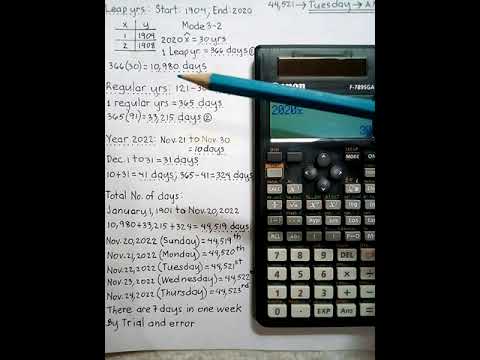 Leap yrs: Start: 1904, End: 2020
44,521 → Tuesday →
x y Mode 3-2
1 1904 2020x̂ = 30 yrs
2 1908 1 Leap yr = 366 days
366(30) = 10,980 days
Regular yrs: 121-30
1 regular yrs = 365 days
365(91) = 33,215 days ②
Year 2022: Nov. 21 to Nov 30
= 10 days
Dec. 1 to 31 = 31 days
10+31 = 41 days, 365-41 = 324 days
Total No. of days:
January 1, 1901 to Nov 20, 2022
10,980+33,215+324 = 44,519 days
Nov. 20, 2022 (Sunday) = 44,519th
Nov. 21, 2022 (Monday) = 44,520th
Nov. 22, 2022 (Tuesday) = 44,521st
Nov. 23, 2022 (Wednesday) = 44,522
Nov. 24, 2022 (Thursday) = 44,523rd
There are 7 days in one week
By Trial and error
Canon
F-789SGA
2020x̂
30
MODE
ON
RCL
ENG
(
)
7 8 9 DEL
4 5 6 × ÷
1 2 3 + −
0 . EXP Ans =